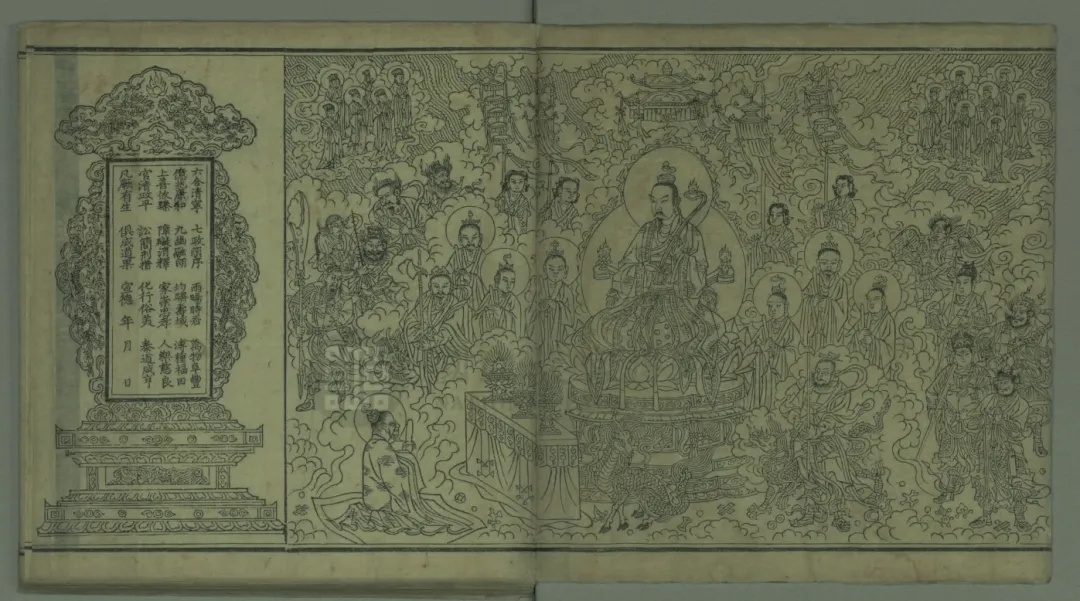 六合清寧　七政順序　雨暘時若　萬物阜豐
億兆康和　九幽融朗　均躋壽域　溥種福田
上善攸臻　障礙消釋　家崇忠孝　人樂慈良
官清政平　訟簡刑措　化行俗美　泰道咸亨
凡厥有生　俱成道果　宣德　年　月　日